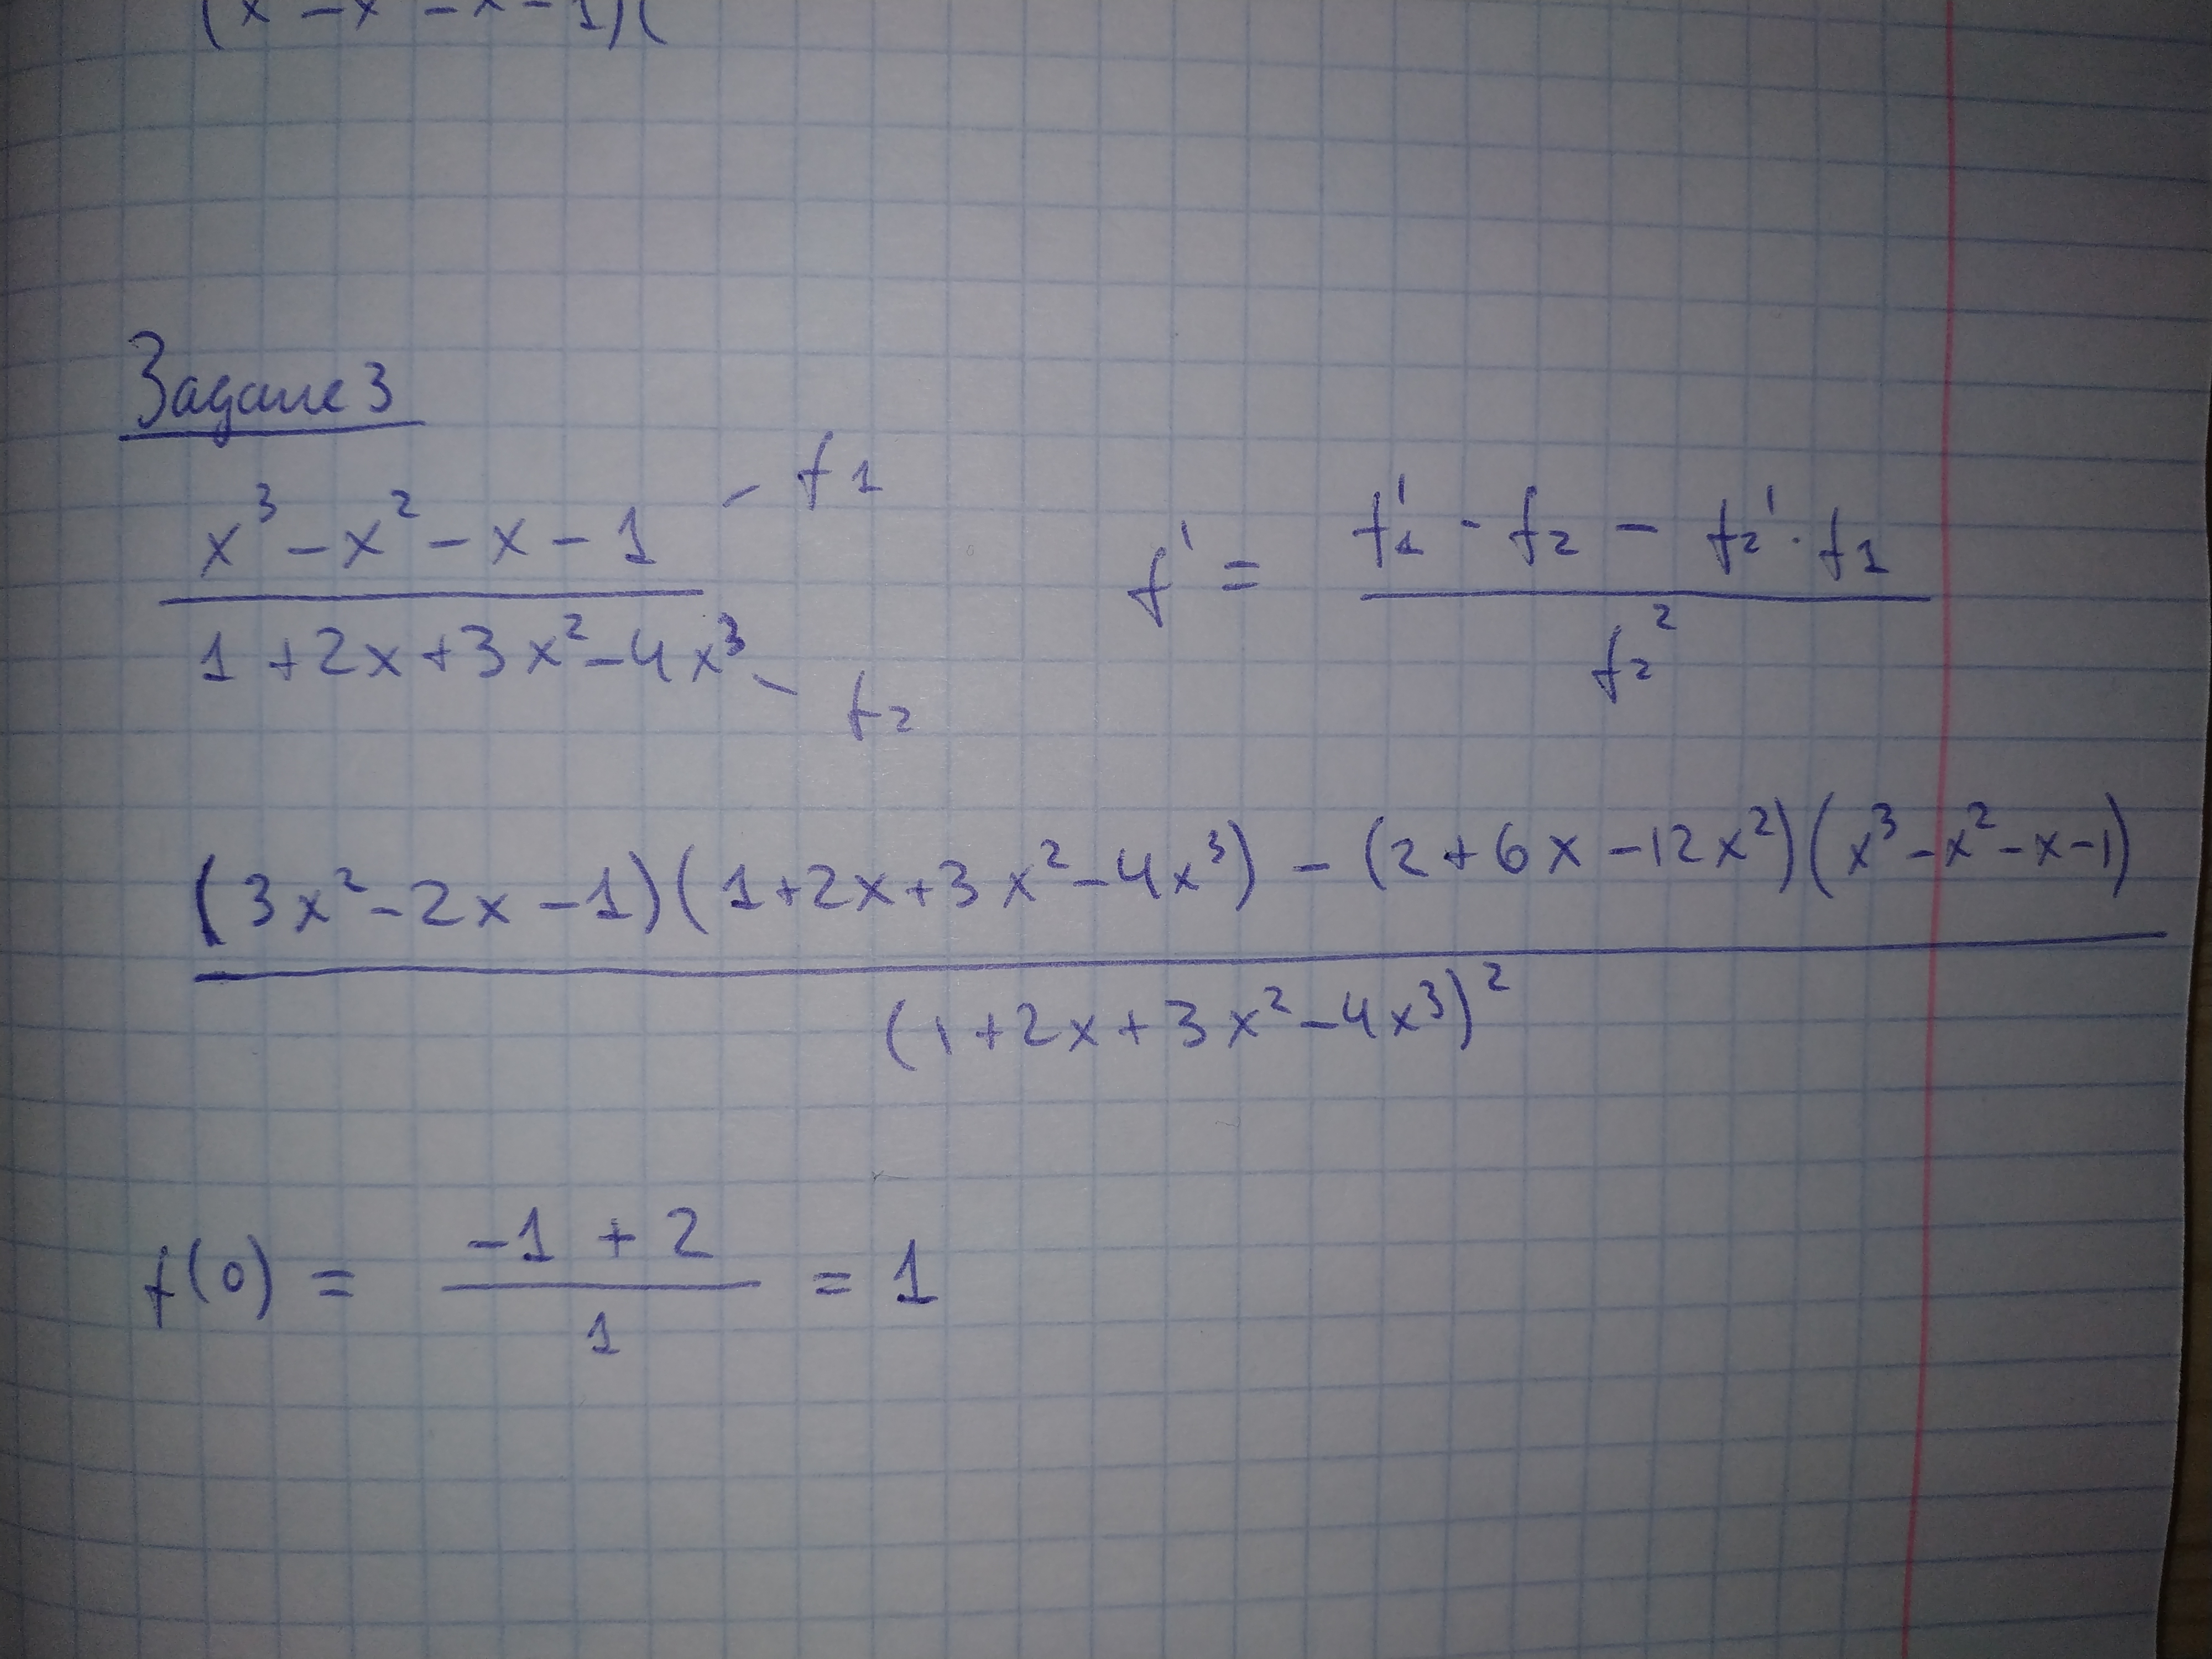 (x - x - x - 1)(
Задание 3
x³ - x² - x - 1 - f1
1 + 2x + 3x² - 4x³ - f2
f' = f1' · f2 - f2' · f1
f2²
(3x² - 2x - 1)(1 + 2x + 3x² - 4x³) - (2 + 6x - 12x²)(x³ - x² - x - 1)
(1 + 2x + 3x² - 4x³)²
f(0) = -1 + 2 = 1
1